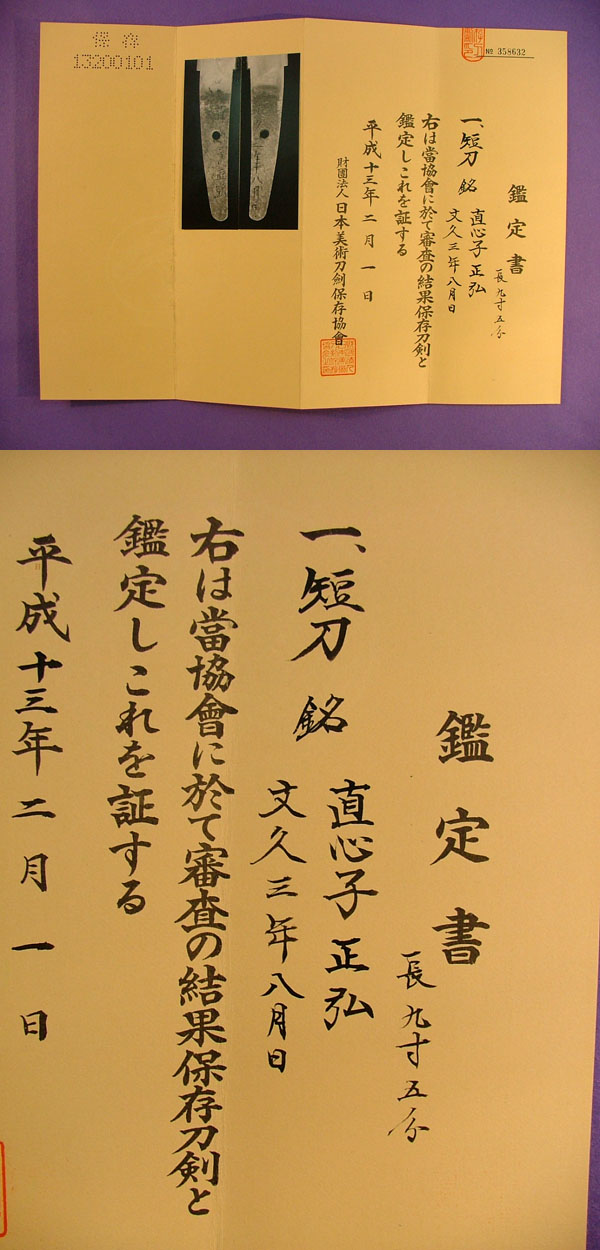 保存
13200101
№ 358632
鑑定書
長九寸五分
一、短刀 銘 直心子正弘
文久三年八月日
右は當協會に於て審査の結果保存刀剣と
鑑定しこれを証する
平成十三年二月一日
財團法人日本美術刀劍保存協會
鑑定書
長九寸五分
一、短刀 銘 直心子正弘
文久三年八月日
右は當協會に於て審査の結果保存刀剣と
鑑定しこれを証する
平成十三年二月一日